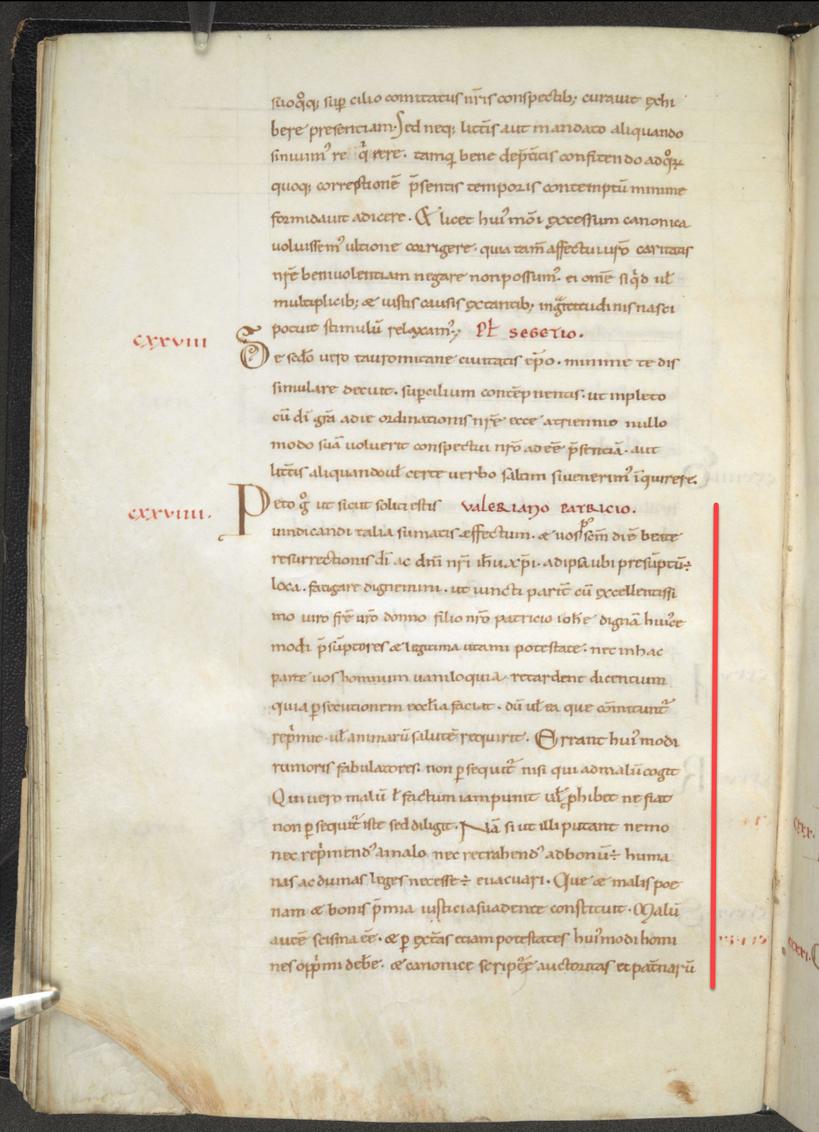 suoq̊q; sup cilio comitatus nr̄is conspectib; curauit exhi
bere presentiam. Sed neq; litt̄is aut mandato aliquando
siuium᾽ re q̊rere. tamq̃ bene dep̄titis confitendo
quoq; correptionē p̄sentis temporis contemptū minime
formidauit adicere. Et licet hui᾽mōi excessum canonica
uoluissem᾽ ultione corrigere. quia tam̄ affectui ur̄o caritatis
nr̄ę beniuolentiam negare non possum᾽. ei om̄e siq̊d ul̄
multiplicib; & iustis causis extantib; ingͣtitudinis nasci
potuit stimulū relaxam᾽; PL̄ SEGETIO.
CXXVIII De sed̄o uero tauromitane ciuitatis ep̄o. minime te dis
simulare decuit. sup̄cilium contēpnentis. ut inpleto
cū dī gr̄a adie ordinationis nr̄ę ecce a triennio nullo
modo suā uoluerit conspectui nr̄o adeē p̄sentiā. aut
litt̄is aliquando ul̄ certe uerbo saltim siuenerim᾽ iq̄uirere.
CXXVIIII. Peto g̊ ut sicut soliti estis VALERIANO PATRICIO.
uindicandi talia sumatis effectum. & uos p᾽ sc̄m diē beate
resurrectionis dī ac dn̄i nr̄i ih̄u xp̄i. adipsa ubi presūptū÷
loca. fatigare dignemini. ut iuncti parit̄ cū excellentissi
mo uiro fr̄e ur̄o domno filio nr̄o patricio ioh̄e dignā hui᾽ce
modi p̄sūptores & legitima utamini potestate. nec in hac
parte uos hominum uaniloquia retardent dicentium
quia p̱secutionem ecc̄lia faciat. dū ul̄ ea que cōmitunt᾽
rep̄mit. ul̄ animarū salutē requirit. Errant hui᾽modi
rumoris fabulatores. non p̱sequit᾽ nisi qui ad malū cogit
Qui uero malū l̄ factum iam punit ul̄ p̱hibet ne fiat
non p̱sequit᾽ iste sed diligit. Nā si ut illi putant nemo
nec rep̄mend᾽ a malo nec retrahend᾽ ad bonū÷ huma
nas ac diuinas leges necesse÷ euacuari. Que & malis poe
nam & bonis p̄mia iusticia suadente constituit. Malū
autē scisma eē. & p̱ ext̄as etiam potestates hui᾽modi homi
nes opp̄mi deb̄e. & canonice scriptͣę auctoritas et pat̄narū